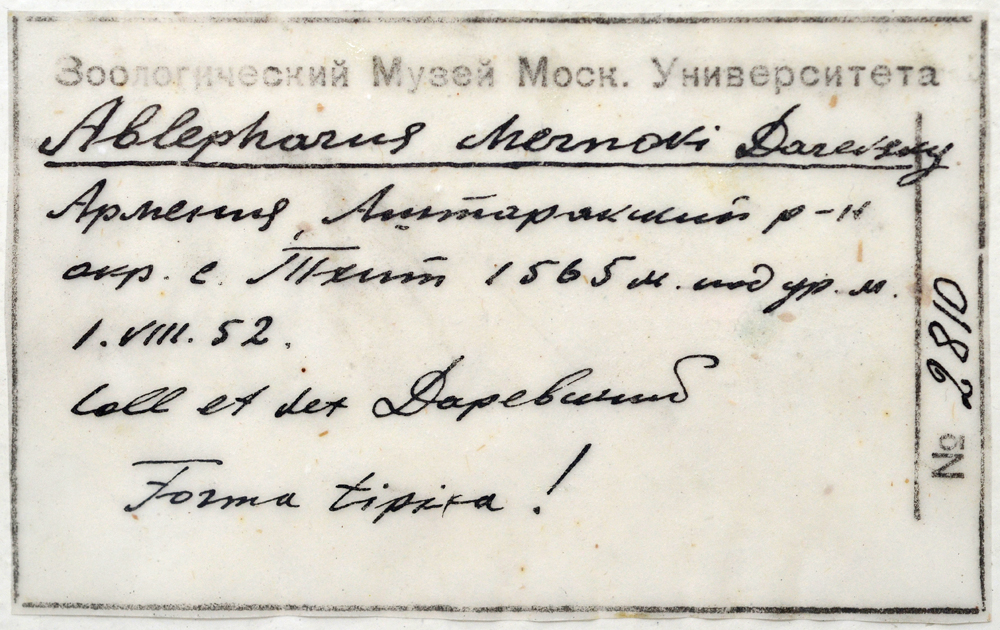 Зоологический Музей Моск. Университета
Ablepharus chernovi Darevsky
Армения, Аштаракский р-н
окр. с. Тхит 1565 м. над ур. м.
1.VIII.52.
Coll et det Даревский
Forma tipica !
№ 2810